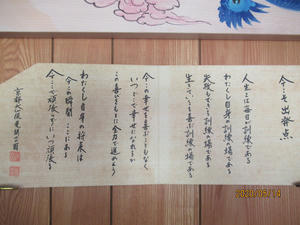 今こそ出発点
人生とは毎日が訓練の場である
わたくし自身の訓練の場である
失敗もできる訓練の場である
生きていることを喜ぶ訓練の場である
今この幸せを喜ぶこともなく
いつどこで幸せになれるか
この喜びをもとに全力で進めよう
わたくし自身の将来は
今この瞬間ここにある
今ここで頑張らずにいつ頑張る
京都大仙院 尾関宗園
2020/05/14